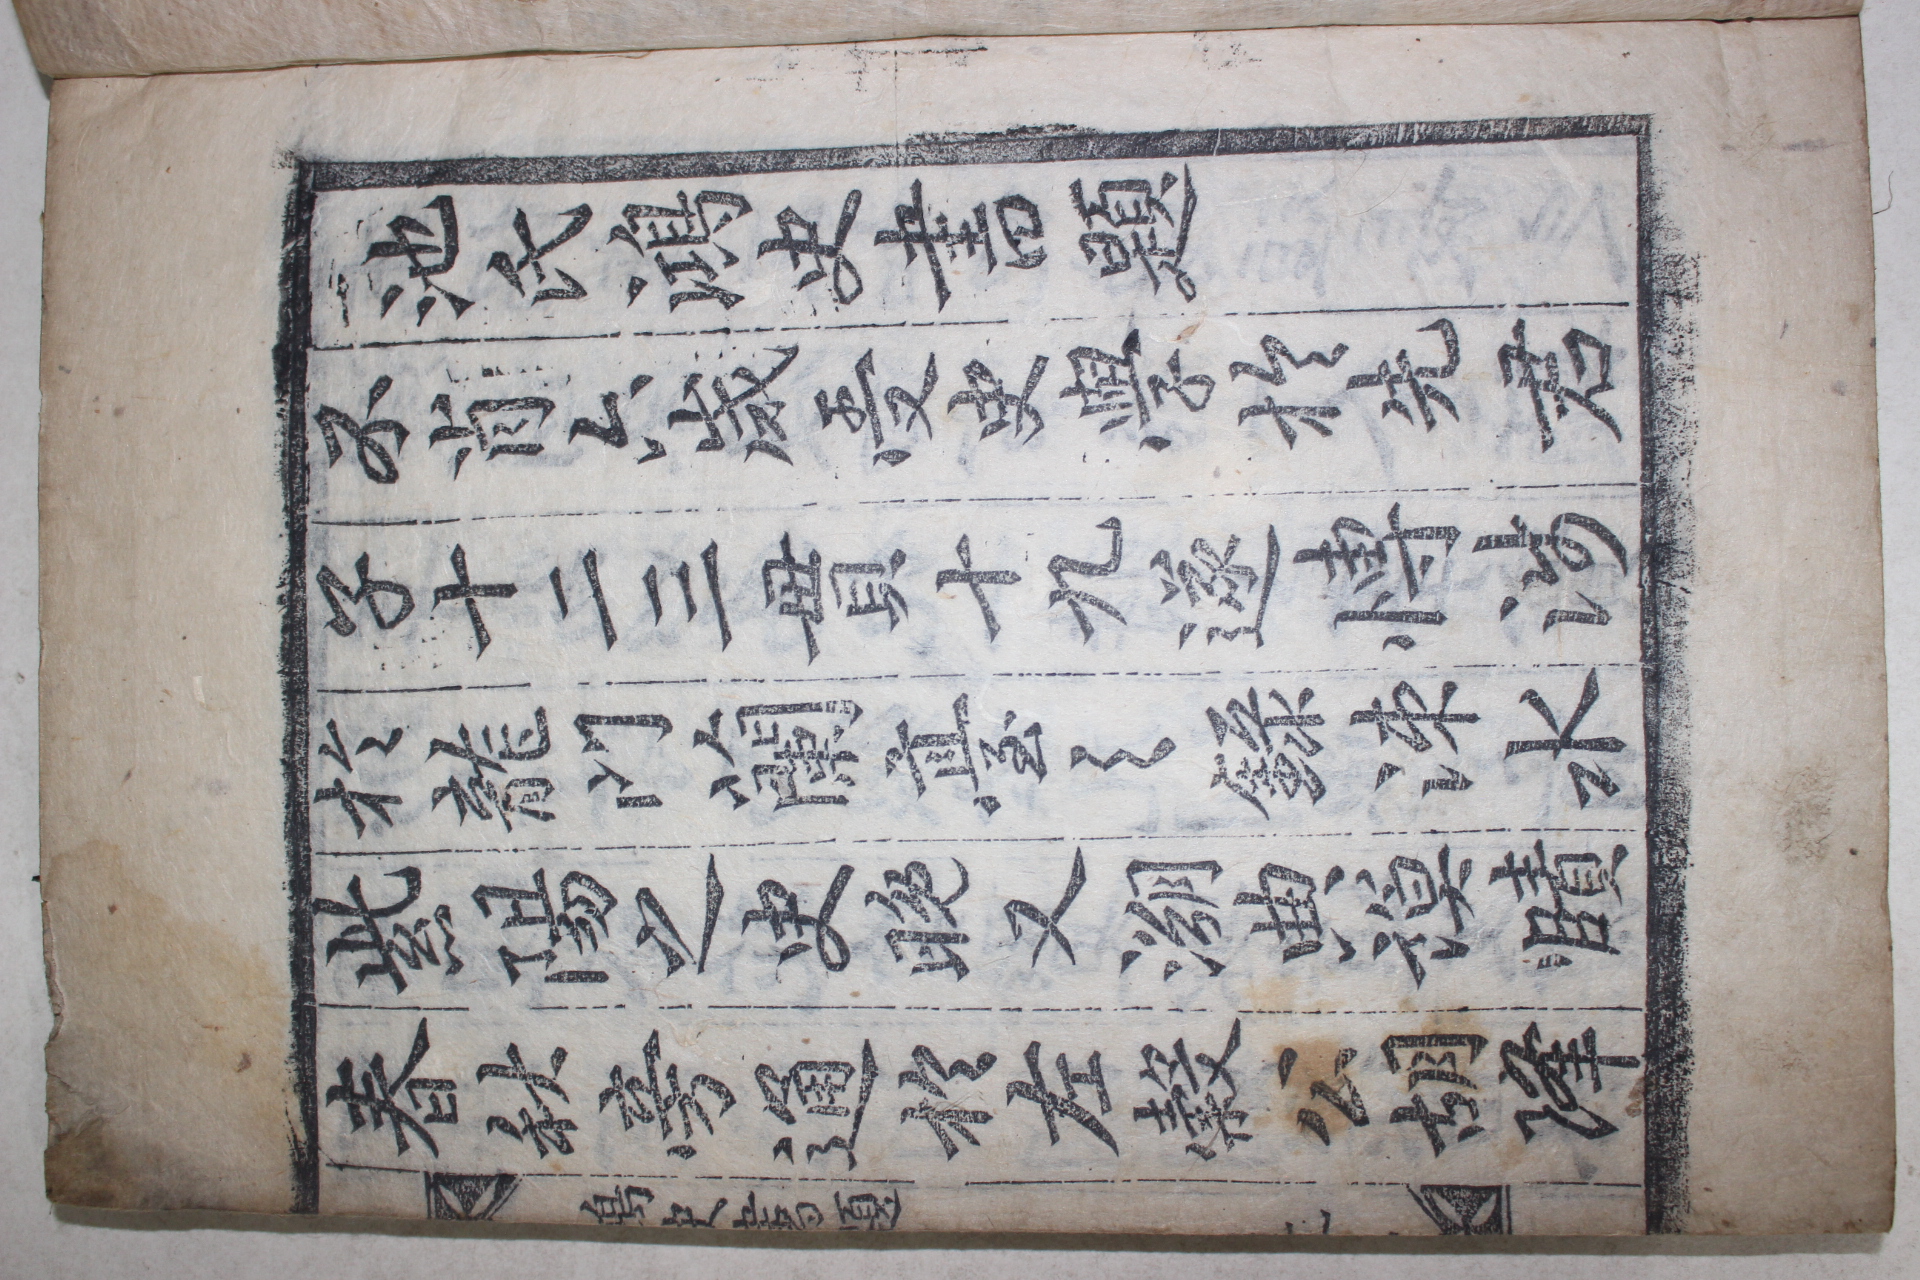 池氏鴻史書題
不肖六歲受史學於先君
子十二三貫十九遂博涉
於龍門蘭臺之錄涑水
紫陽之史晚又溯典謨賾
春秋旁通於左糓公胡降
鴻史書題